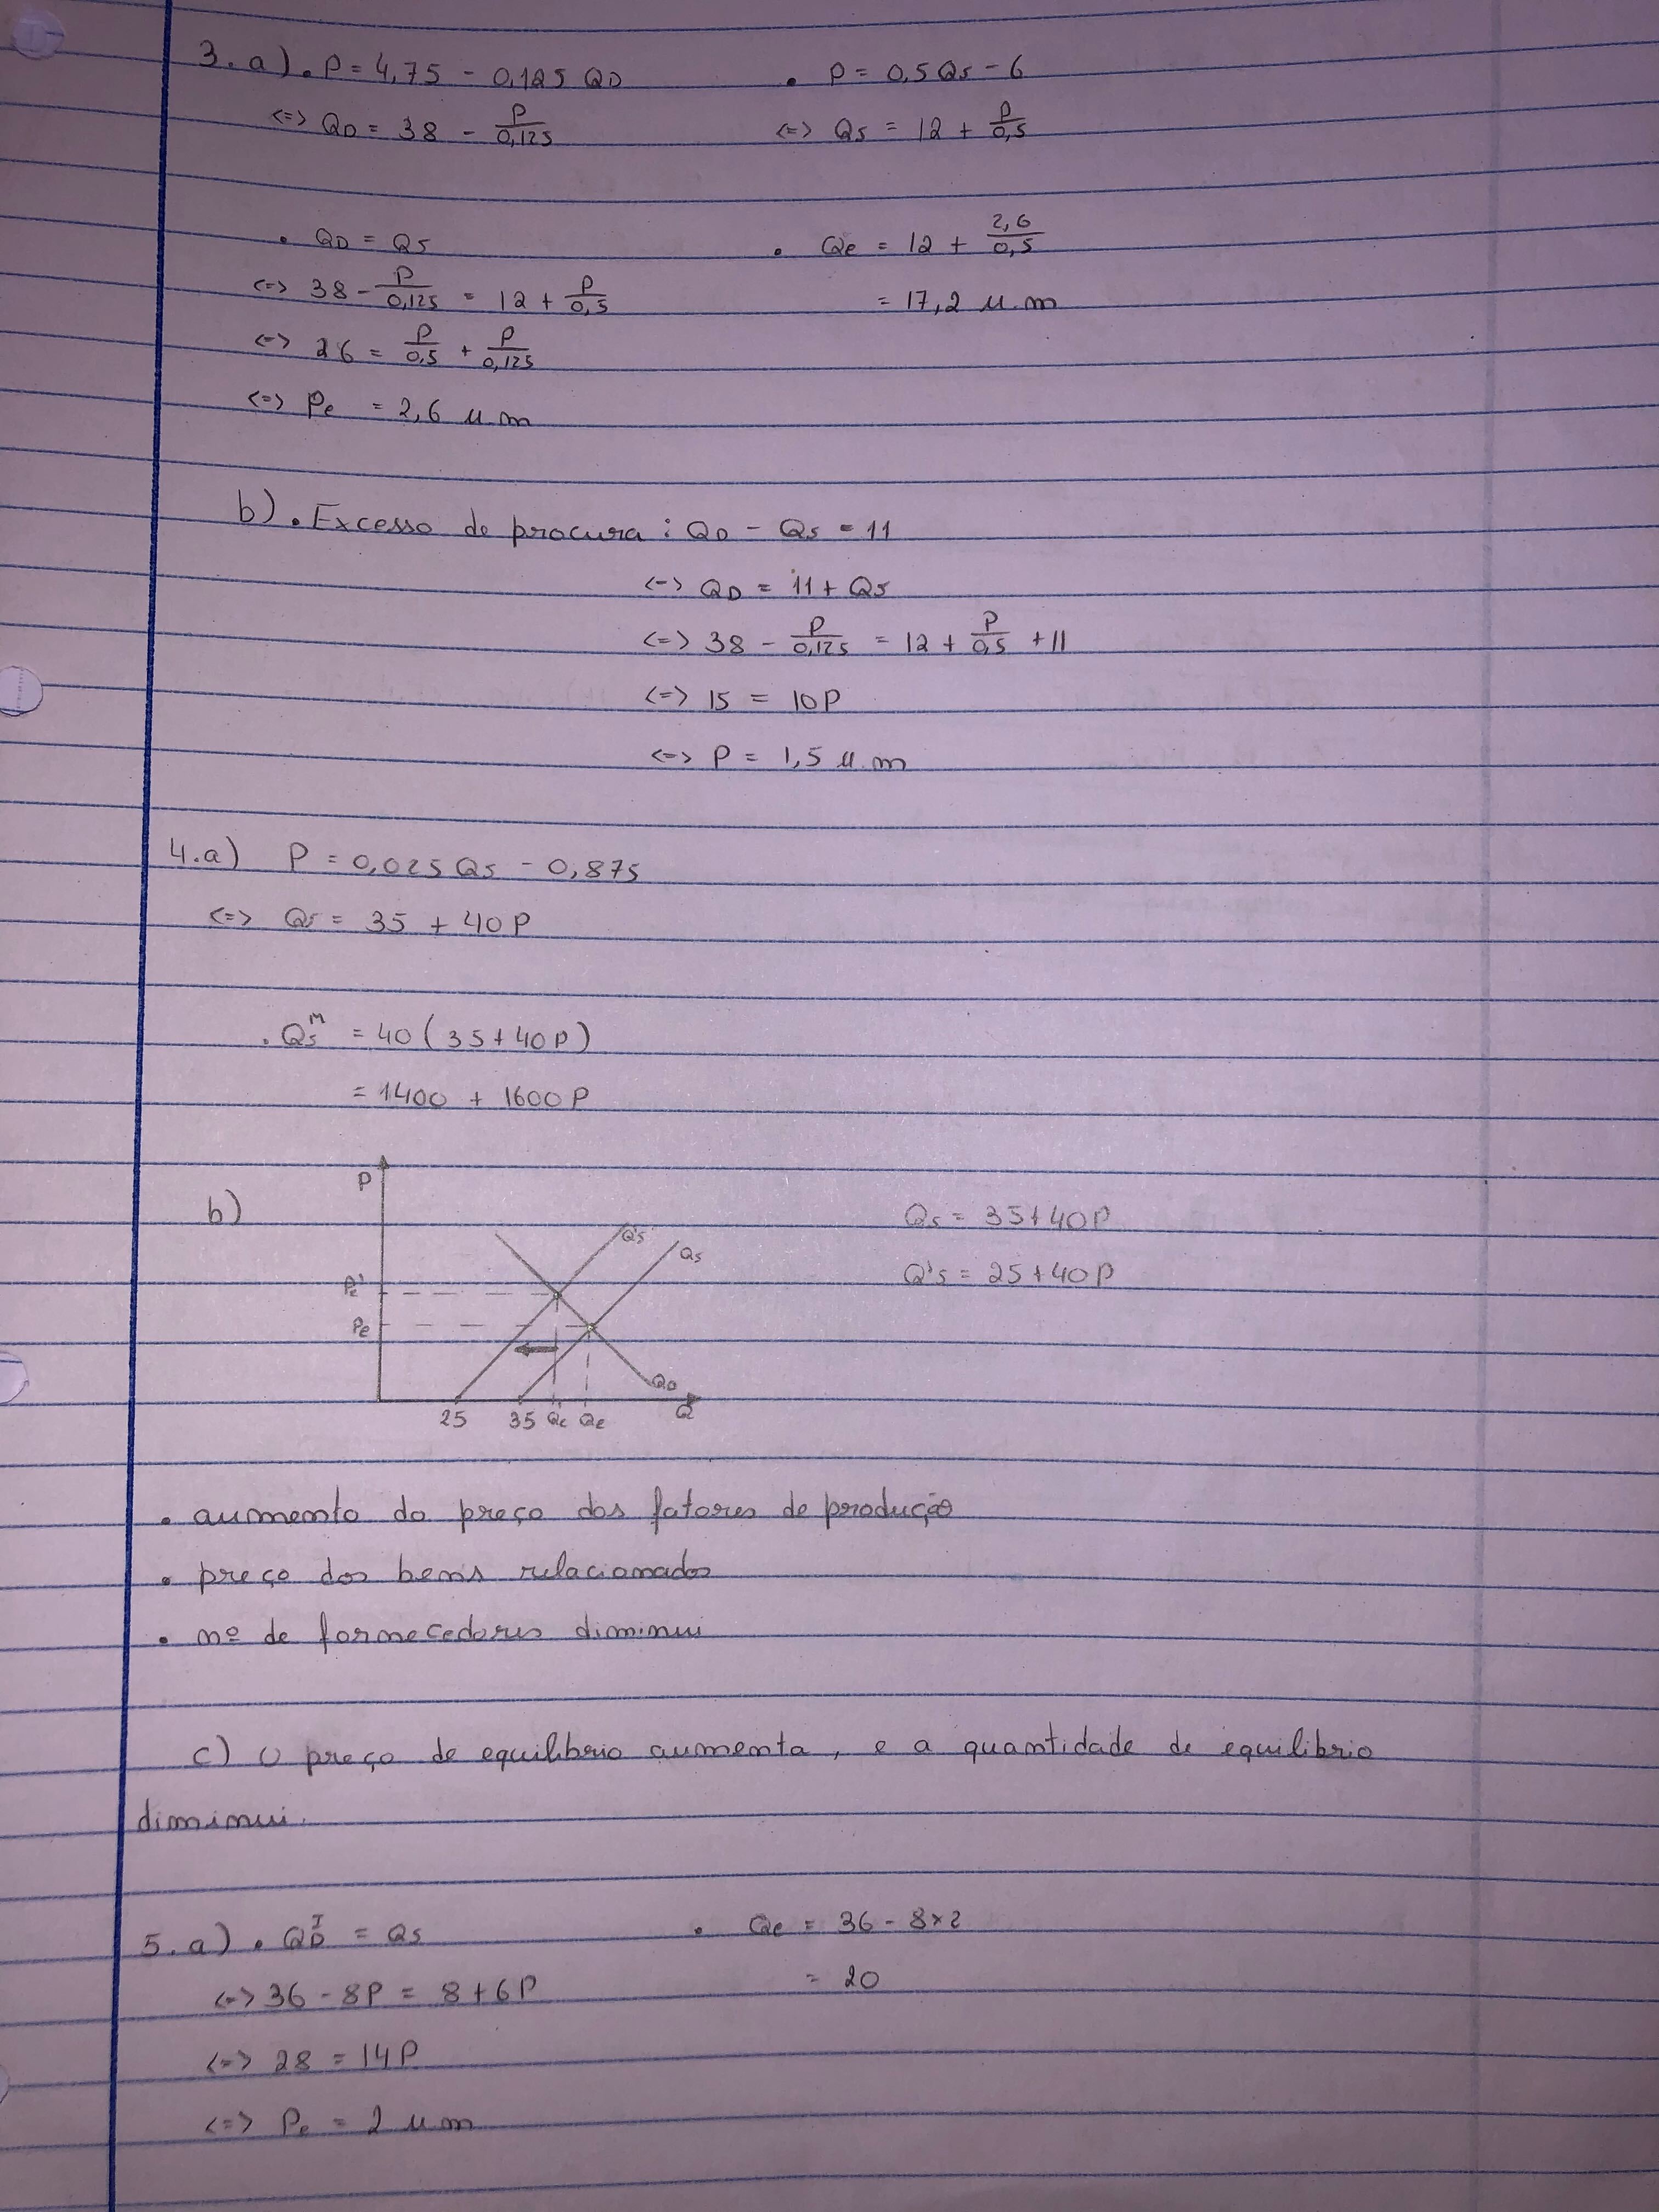 3. a) . P = 4,75 - 0,125 QD
<=> QD = 38 - P/0,125
. P = 0,5 Qs - 6
<=> Qs = 12 + P/0,5
. QD = Qs
<=> 38 - P/0,125 = 12 + P/0,5
<=> 26 = P/0,5 + P/0,125
<=> Pe = 2,6 u.m
. Qe = 12 + 2,6/0,5
= 17,2 u.m
b) . Excesso de procura : QD - Qs = 11
<=> QD = 11 + Qs
<=> 38 - P/0,125 = 12 + P/0,5 + 11
<=> 15 = 10P
<=> P = 1,5 u.m
4. a) P = 0,025 Qs - 0,875
<=> Qs = 35 + 40P
. Qs^M = 40 ( 35 + 40P )
= 1400 + 1600P
b)
P
Q's
Qs
Pe'
Pe
QD
25 35 Qe' Qe Q
Qs = 35 + 40P
Q's = 25 + 40P
. aumento do preço dos fatores de produção
. preço dos bens relacionados
. nº de fornecedores diminui
c) O preço de equilibrio aumenta, e a quantidade de equilibrio
diminui.
5. a) . QD^I = Qs
<=> 36 - 8P = 8 + 6P
<=> 28 = 14P
<=> Pe = 2 u.m
. Qe = 36 - 8×2
= 20